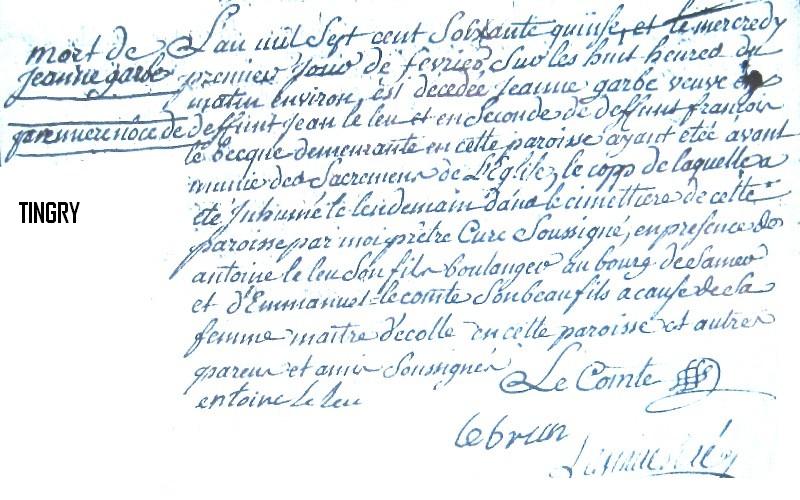 mort de
jeanne garbe
L'an mil Sept cent Soixante quinse, et le mercredy
premier jour de fevrier Sur les huit heures du
matin environ, est decedée jeanne garbe veuve en
premiere nôce de deffunt jean le leu et en Seconde de deffunt francois
le becque demeurante en cette paroisse ayant étée avant
munie des Sacremens de L'Eglise, le corps de laquelle a
été Inhumé le lendemain dans le cimettiere de cette
paroisse par moi prêtre Curé Soussigné, en presence de
antoine le leu Son fils boulanger au bourg de Samer
et d'Emmanuel le comte Son beau fils a cause de sa
femme maître d'ecolle en cette paroisse et autres
parens et amis Soussignés
Le Comte
entoine le leu
lebrun
TINGRY